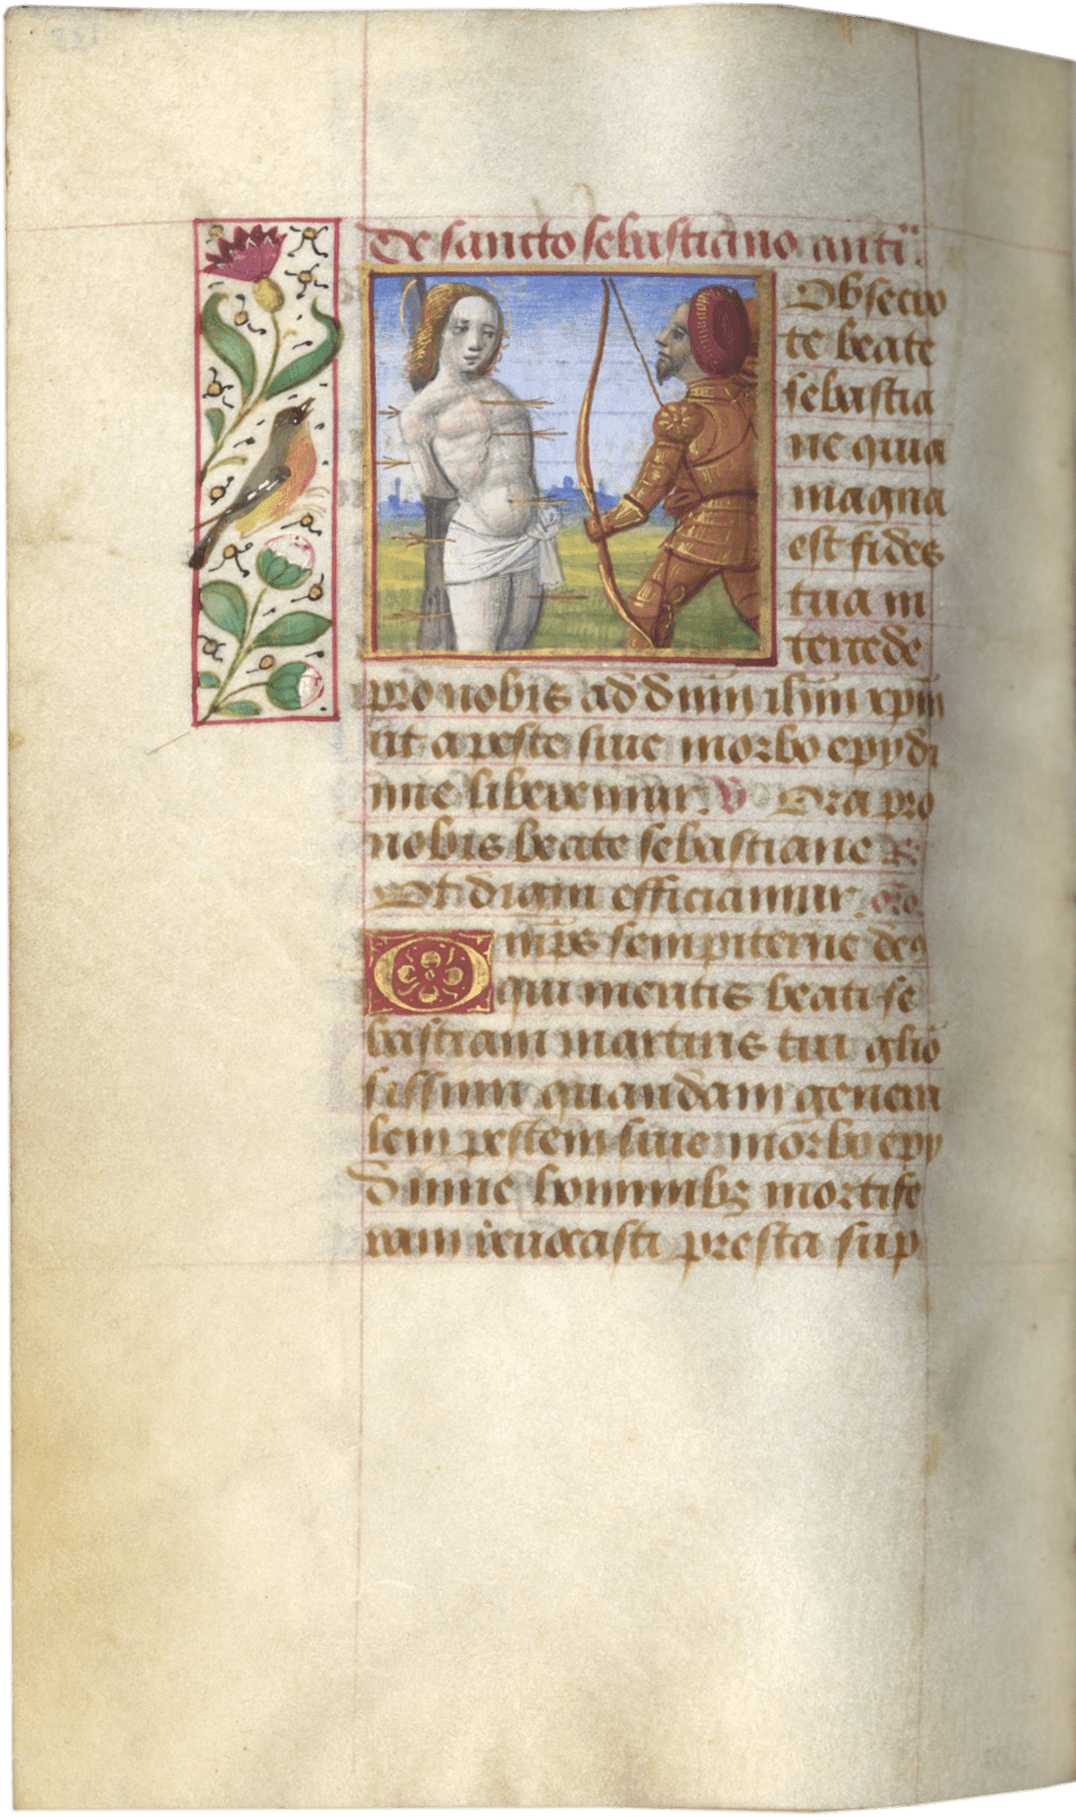 De sancto sebastiano anti͞.
Obsecro
te beate
sebastia
ne quia
magna
est fides
tua in
tercede
pro nobis ad dnm̄ ihm̄ xpm̄
ut a peste siue morbo epydi
mie liberemur. V Ora pro
nobis beate sebastiane R
Vt digni efficiamur. oro.
Omps sempiterne deꝰ
qui meritis beati se
bastiani martiris tui glio
sissimi quandam genera
lem pestem siue morbo epy
dimie hominibꝫ mortife
ram reuocasti presta sup